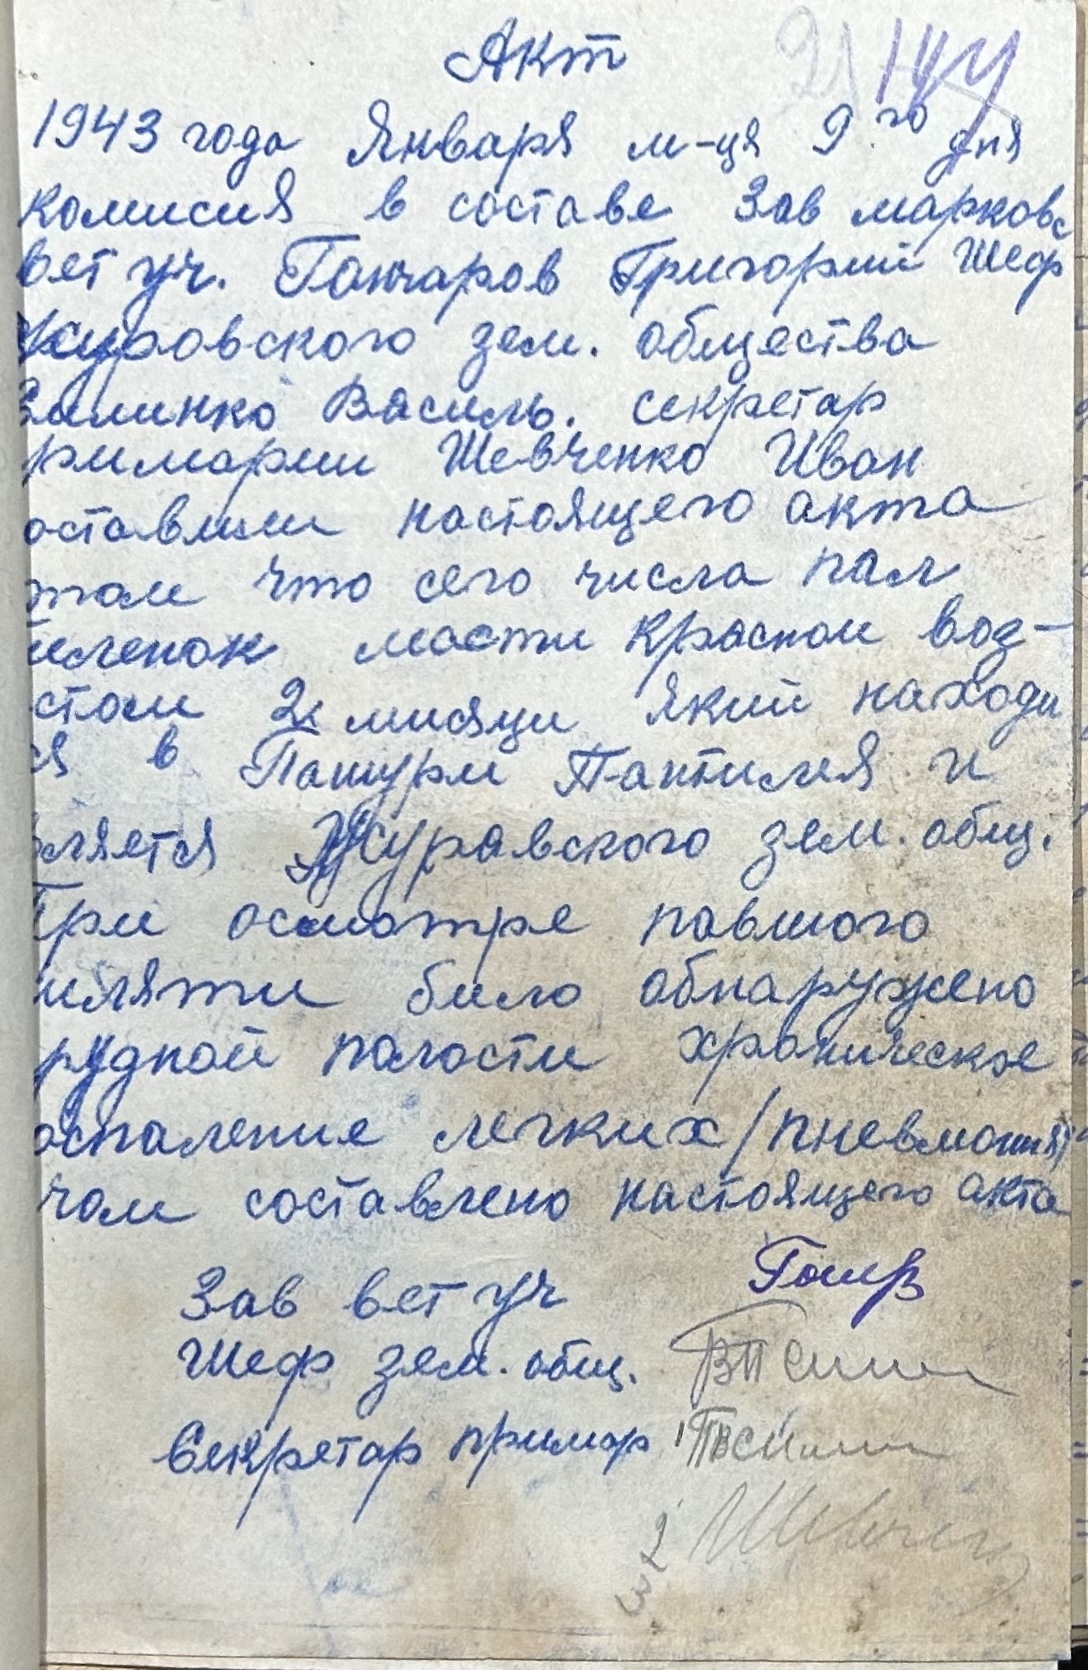 Акт
1943 года Января м-ця 9го дня
комисия в составе Зав марковс
вет уч. Гончаров Григорий Шеф
Журовского зем. общества
Василь. секретар
римарии Шевченко Иван
оставили настоящего акта
том что сего числа пал
иленок масти красной воз-
стом 2х мисяци який находи
ся в Пантилея и
вляется Журавского зем. общ.
При осмотре павшого
иляти било обнаружено
рудной полости хроническое
оспаление легких/пневмония/
чом составлено настоящего акта
Зав вет уч
Шеф зем. общ.
Секретар примар